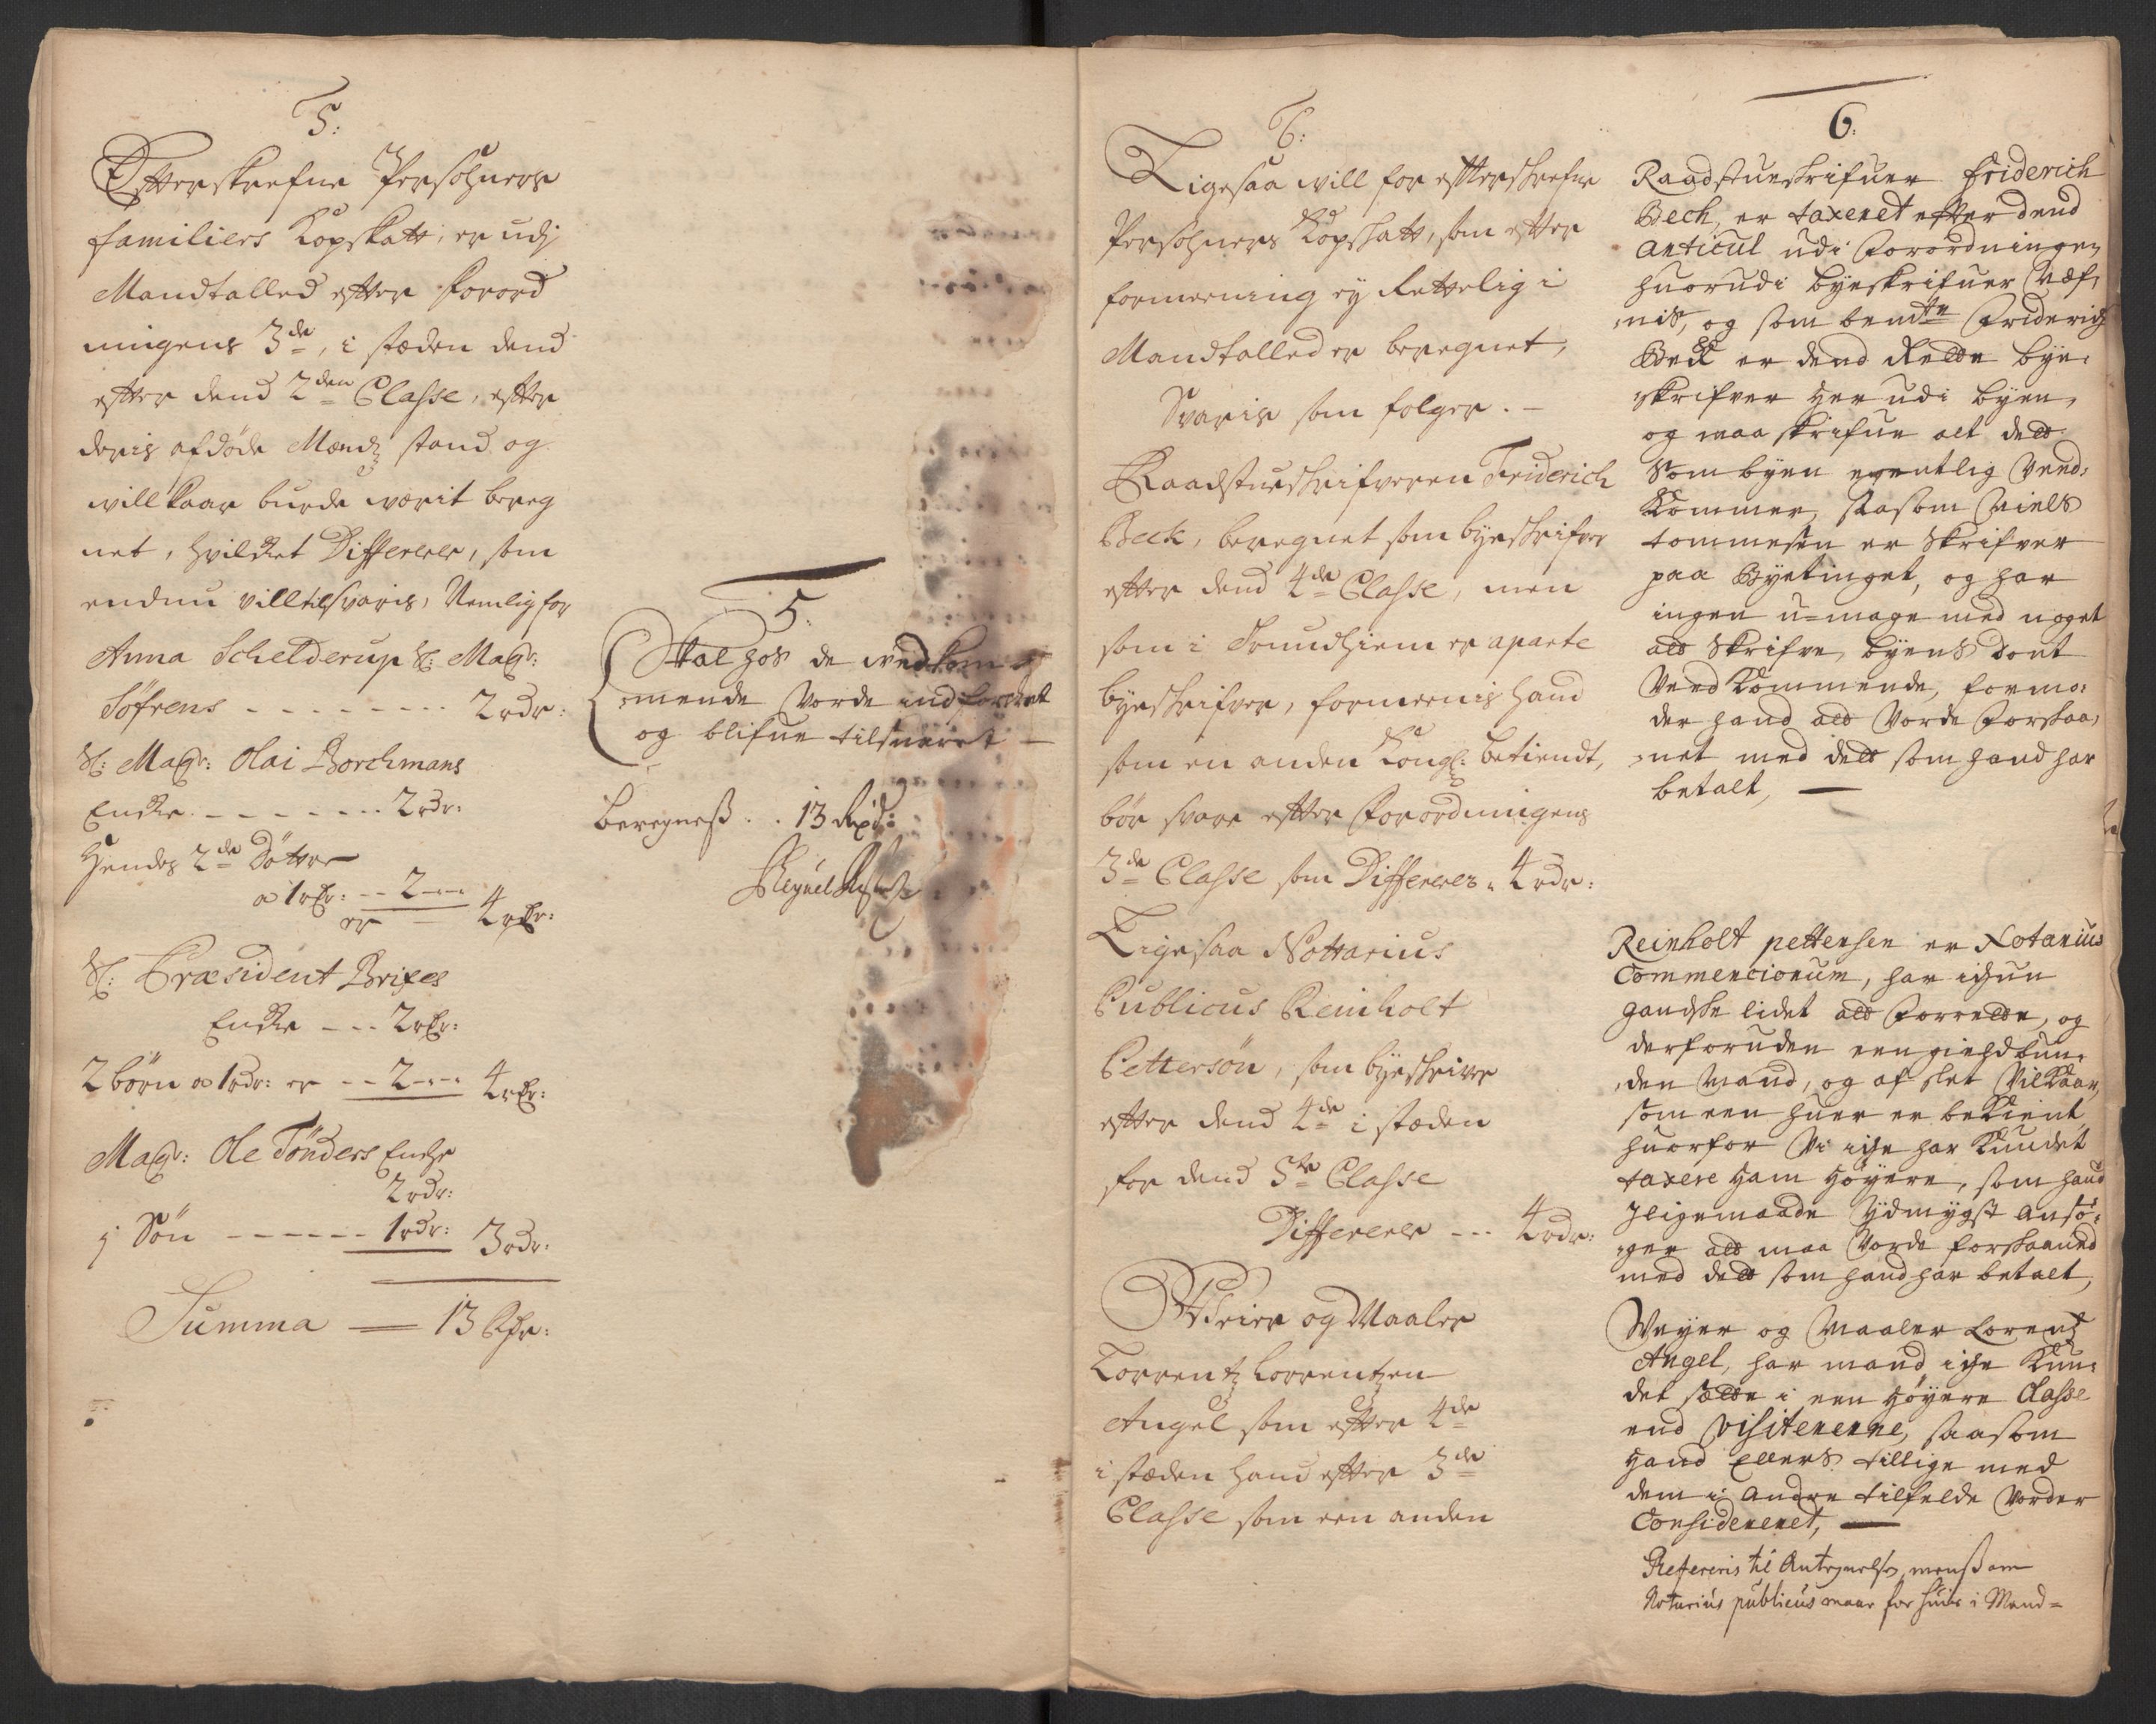 5:
Efterskrefne Persohners
familiers Kopskatt, er udj
Mandtalled efter Forord
ningens 3de, i stæden dend
efter dend 2den Classe, efter
deris afdøde Mændz stand og
willkaar burde wærit bereg
net, hvilket Differerer, som
endnu vill tilsvaris, Nemlig for
Anna Schelderup Sl: Magr:
Söfrens - - - - - - - - 2 rdr:
Sl: Magr: Olai Borchmans
Encke - - - - - - - 2 rdr:
Hendes 2de Døttre
a 1 rdr: - - 2 - - -
er 4 rdr:
Sl: Præsident Brixes
Encke - - - 2 rdr:
2 börn a 1 rdr: er - - 2 - - - 4 rdr:
Magr: Ole Tönders Encke
2 rdr:
j Sön - - - - - - 1 rdr: 3 rdr:
Summa — 13 Rdr:
5:
Skal hos de wedkom
mende Vorde indfordret
og blifue tilsuaret —
beregneß . . 13 Rixd:
6:
Ligesaa will for efterskrefne
Persohners Kopskatt, som efter
formeening ey Rettelig i
Mandtalled er beregnet,
Svaris som følger. -
Raadstueskrifveren Friderich
Beck, beregnet som byeskrifver
efter dend 4de Classe, men
som i Trundhiem er aparte
byeskrifver, formeenis hand
som en anden Kongl: betiendt,
bör svare efter Forordningens
3de Classe som Differerer 4 rdr:
Ligesaa Nottarius
Publicus Reinholt
Pettersön, som byeskriver
efter dend 4de i stæden
for dend 3de Classe
Differerer - - - 4 rdr:
Weier og Maaler
Lorrentz Lorrentzen
Angel som efter 4de
i stæden hand efter 3de
Classe som een anden
6:
Raadstueskrifuer friderich
Bech, er taxeret efter dend
Articul udi Forordningen,
huorudi byeskrifuer Næf,
nis, og som bemte Friderich
Beck er dend Rette bye:
skrifver her udi byen,
og maa skrifue alt dett
Som byen egentlig Ved:
Kommer, saasom Niels
tommesen er Skrifver
paa Byetinget, og har
ingen u=mage med noget
att Skrifve, byens dont
Ved Kommende, formo:
der hand att Vorde Forskaa,
net med dett som hand har
betalt, —
Reinholt pettersen er Notarius
Commerciorum, har ickun
gandske lidet att Forrette, og
derforuden een gieldbun:
den Mand, og af slet Vilkaar,
som een huer er bekient
huorfor Vi icke har Kundet
taxere ham höyere, som hand
Jligemaade ÿdmygst ansö:
ger att maa Vorde forskaaned
med dett som hand har betalt,
Weyer og Maaler Lorentz
Angel, har mand icke Kun:
det sætte i een höyere Classe
end Visitererne, saasom
hand Ellers tillige med
dem i Andre tilfelde Vorder
Considereret, —
Refereris til Antegnelse, menß om
Notarius publicus maae for huis i Mand=